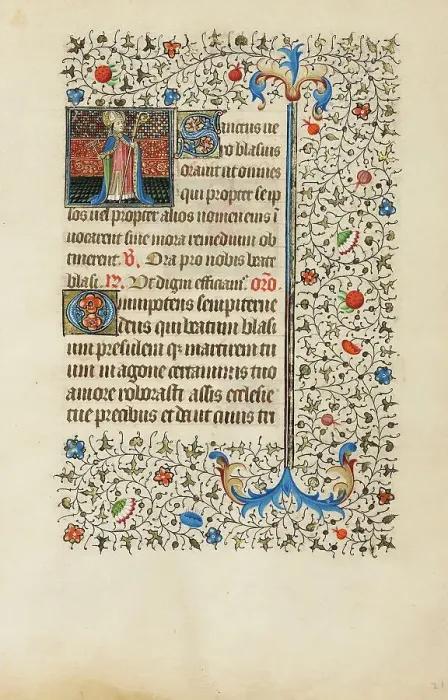 Sanctus ne
ro blasius
orauit ut omnes
qui propter se ip
sos uel propter alios nomen eius i
uocarent sine mora remedium ob
tinerent. V. Ora pro nobis beate
blasi. R. Ut digni efficiam. oro.
Omnipotens sempiterne
deus qui beatum blasi
um presulem q martirem tu
um in agone certaminis tuo
amore roborasti assis ecclesie
tue precibus et